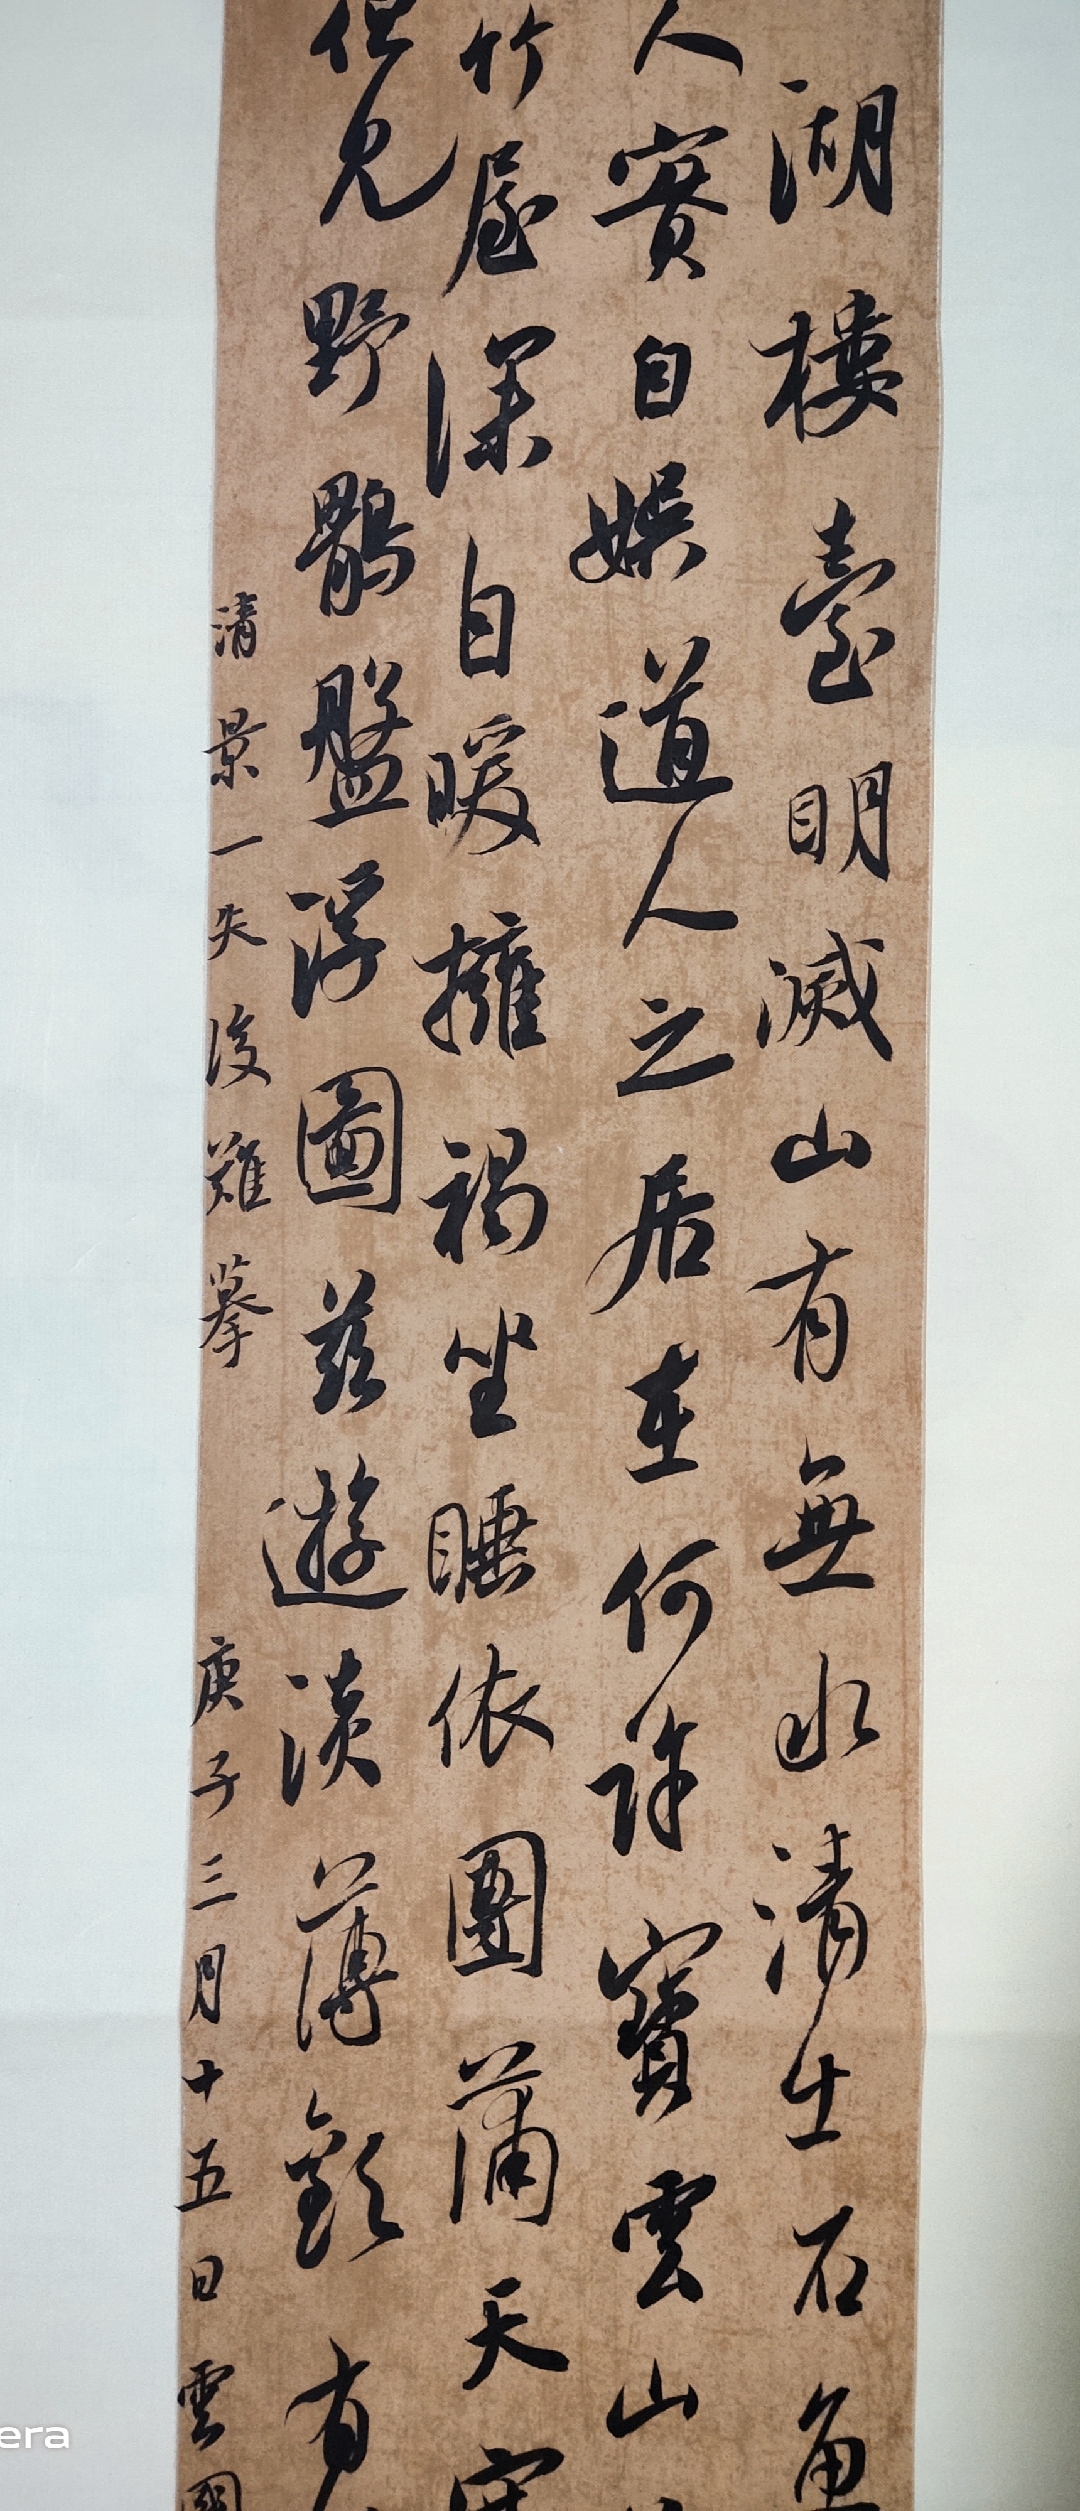 湖樓臺明滅山有無水清出石魚
人實自娛道人之居在何許寶雲山
竹屋深自暖擁褐坐睡依團蒲天寒
但見野鶻盤浮圖茲遊淡薄歡有
清景一失後難摹 庚子三月十五日雲國
era